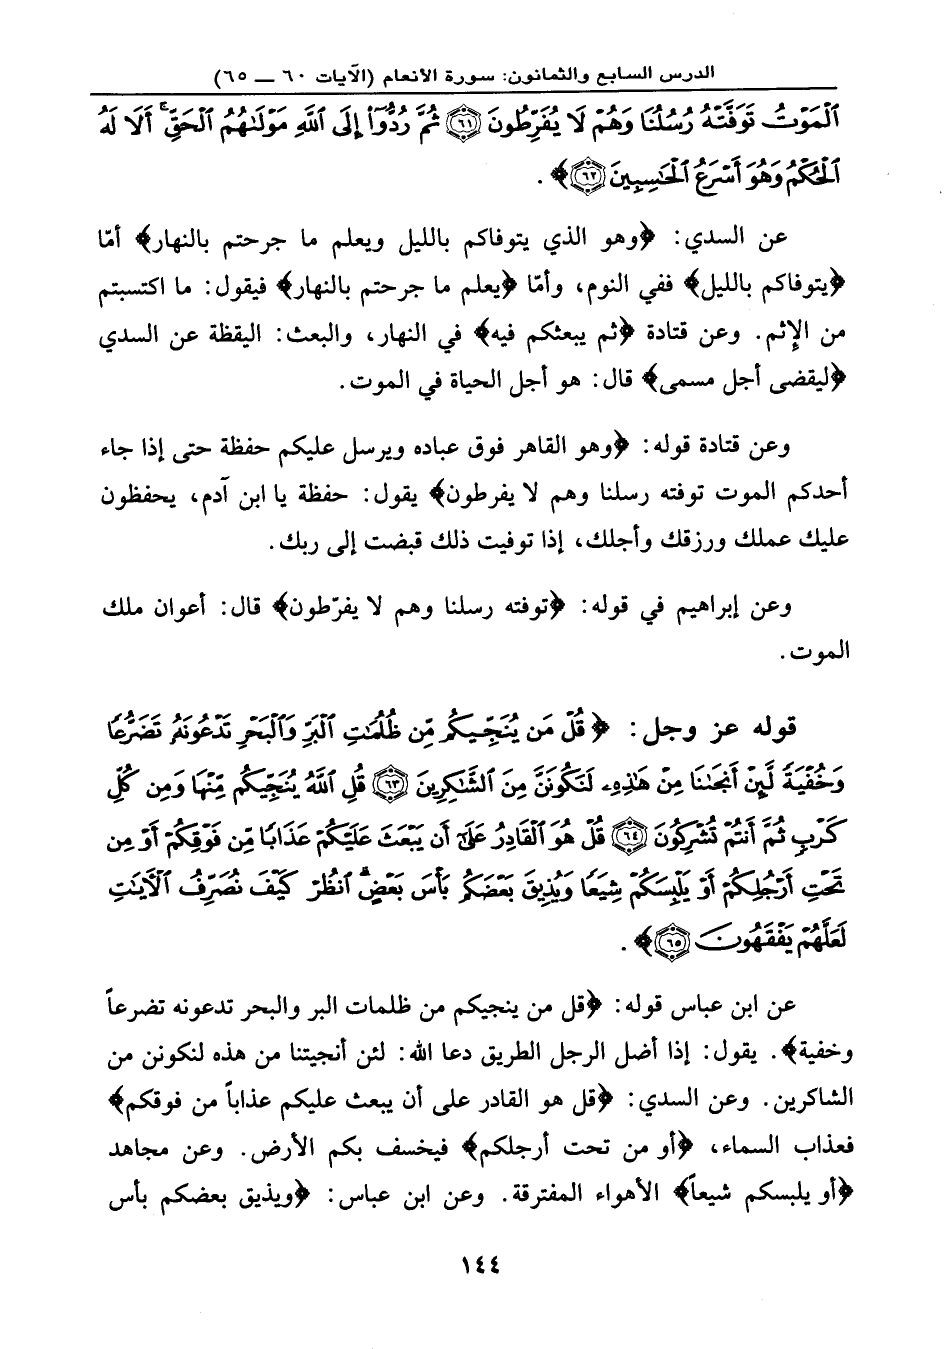 الدرس السابع والثمانون: سورة الأنعام (الآيات ٦٠ ــ ٦٥)
ٱلْمَوْتُ تَوَفَّتْهُ رُسُلُنَا وَهُمْ لَا يُفَرِّطُونَ ﴿٦١﴾ ثُمَّ رُدُّوٓا۟ إِلَى ٱللَّهِ مَوْلَىٰهُمُ ٱلْحَقِّ ۚ أَلَا لَهُ
ٱلْحُكْمُ وَهُوَ أَسْرَعُ ٱلْحَٰسِبِينَ ﴿٦٢﴾﴾ .
عن السدي: ﴿وهو الذي يتوفاكم بالليل ويعلم ما جرحتم بالنهار﴾ أمّا
﴿يتوفاكم بالليل﴾ ففي النوم، وأمّا ﴿يعلم ما جرحتم بالنهار﴾ فيقول: ما اكتسبتم
من الإثم. وعن قتادة ﴿ثم يبعثكم فيه﴾ في النهار، والبعث: اليقظة عن السدي
﴿ليقضى أجل مسمى﴾ قال: هو أجل الحياة في الموت.
وعن قتادة قوله: ﴿وهو القاهر فوق عباده ويرسل عليكم حفظة حتى إذا جاء
أحدكم الموت توفته رسلنا وهم لا يفرطون﴾ يقول: حفظة يا ابن آدم، يحفظون
عليك عملك ورزقك وأجلك، إذا توفيت ذلك قبضت إلى ربك.
وعن إبراهيم في قوله: ﴿توفته رسلنا وهم لا يفرّطون﴾ قال: أعوان ملك
الموت.
قوله عز وجل: ﴿قُلْ مَن يُنَجِّيكُم مِّن ظُلُمَٰتِ ٱلْبَرِّ وَٱلْبَحْرِ تَدْعُونَهُۥ تَضَرُّعًا
وَخُفْيَةً لَّئِنْ أَنجَىٰنَا مِنْ هَٰذِهِۦ لَنَكُونَنَّ مِنَ ٱلشَّٰكِرِينَ ﴿٦٣﴾ قُلِ ٱللَّهُ يُنَجِّيكُم مِّنْهَا وَمِن كُلِّ
كَرْبٍ ثُمَّ أَنتُمْ تُشْرِكُونَ ﴿٦٤﴾ قُلْ هُوَ ٱلْقَادِرُ عَلَىٰٓ أَن يَبْعَثَ عَلَيْكُمْ عَذَابًا مِّن فَوْقِكُمْ أَوْ مِن
تَحْتِ أَرْجُلِكُمْ أَوْ يَلْبِسَكُمْ شِيَعًا وَيُذِيقَ بَعْضَكُم بَأْسَ بَعْضٍ ۗ ٱنظُرْ كَيْفَ نُصَرِّفُ ٱلْءَايَٰتِ
لَعَلَّهُمْ يَفْقَهُونَ ﴿٦٥﴾﴾ .
عن ابن عباس قوله: ﴿قل من ينجيكم من ظلمات البر والبحر تدعونه تضرعاً
وخفية﴾. يقول: إذا أضل الرجل الطريق دعا الله: لئن أنجيتنا من هذه لنكونن من
الشاكرين. وعن السدي: ﴿قل هو القادر على أن يبعث عليكم عذاباً من فوقكم﴾
فعذاب السماء، ﴿أو من تحت أرجلكم﴾ فيخسف بكم الأرض. وعن مجاهد
﴿أو يلبسكم شيعاً﴾ الأهواء المفترقة. وعن ابن عباس: ﴿ويذيق بعضكم بأس
١٤٤